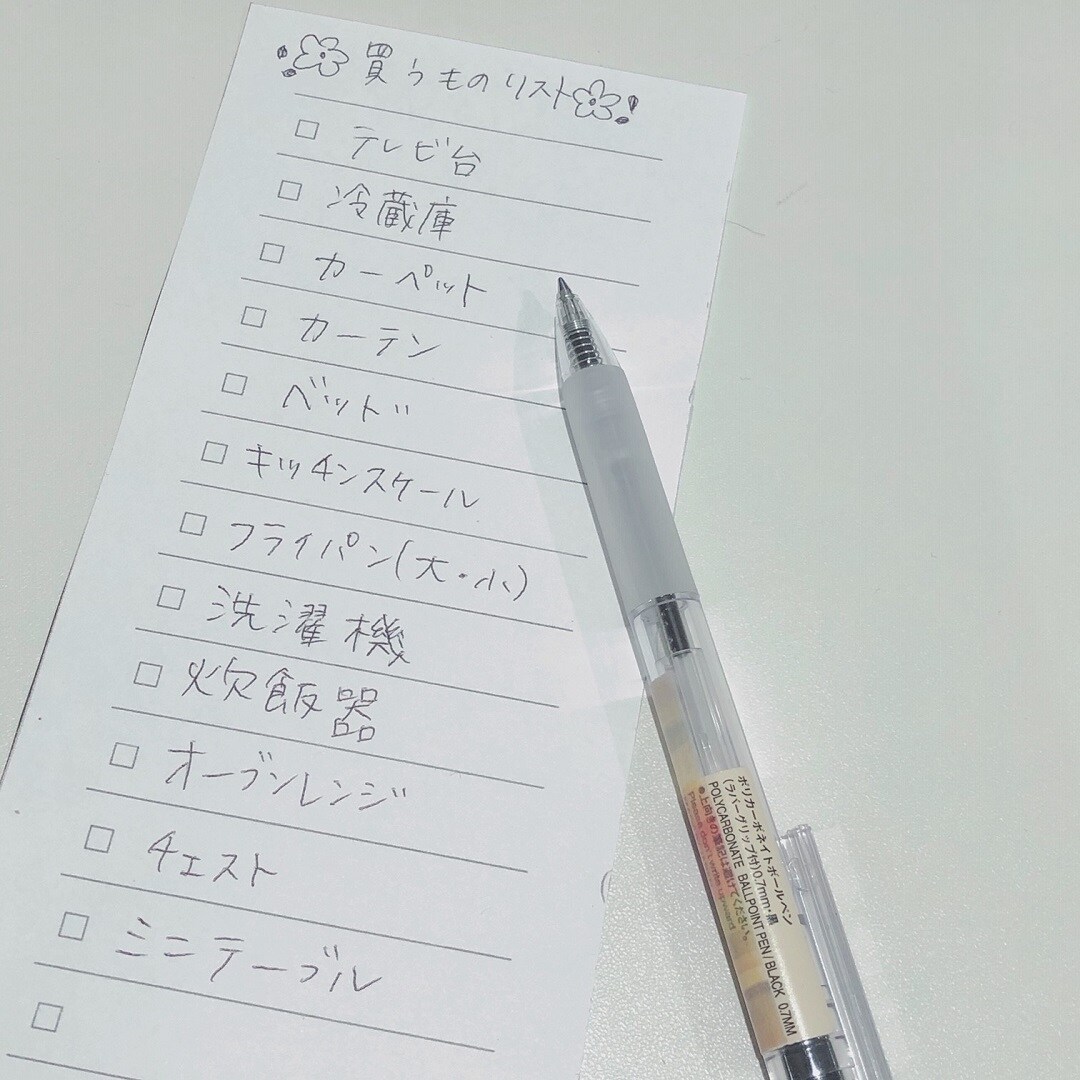 買うものリスト
□ テレビ台
□ 冷蔵庫
□ カーペット
□ カーテン
□ ベッド
□ キッチンスケール
□ フライパン(大・小)
□ 洗濯機
□ 炊飯器
□ オーブンレンジ
□ チェスト
□ ミニテーブル
□
ポリカーボネイトボールペン
(ラバーグリップ付)0.7mm・黒
POLYCARBONATE BALLPOINT PEN/BLACK 0.7MM
●上向きの筆記は避けてください。
Please don't write upward